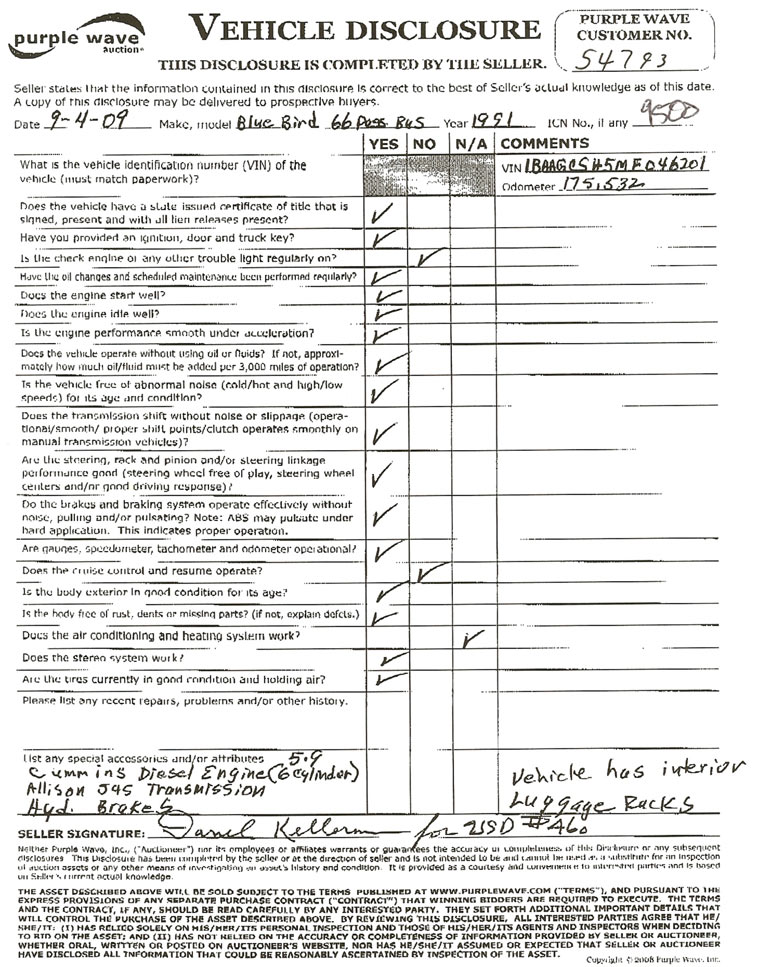 purple wave
auction
VEHICLE DISCLOSURE
THIS DISCLOSURE IS COMPLETED BY THE SELLER.
PURPLE WAVE
CUSTOMER NO.
54793
Seller states that the information contained in this disclosure is correct to the best of Seller's actual knowledge as of this date.
A copy of this disclosure may be delivered to prospective buyers.
Date 9-4-09 Make, model Blue Bird 66 Pass Bus Year 1991 ICN No., if any 9500
YES NO N/A COMMENTS
What is the vehicle identification number (VIN) of the
vehicle (must match paperwork)?
VIN 1BAAGCSH5MF046201
Odometer 175,532
Does the vehicle have a state issued certificate of title that is
signed, present and with all lien releases present?
Have you provided an ignition, door and truck key?
Is the check engine or any other trouble light regularly on?
Have the oil changes and scheduled maintenance been performed regularly?
Does the engine start well?
Does the engine idle well?
Is the engine performance smooth under acceleration?
Does the vehicle operate without using oil or fluids? If not, approxi-
mately how much oil/fluid must be added per 3,000 miles of operation?
Is the vehicle free of abnormal noise (cold/hot and high/low
speeds) for its age and condition?
Does the transmission shift without noise or slippage (opera-
tional/smooth/ proper shift points/clutch operates smoothly on
manual transmission vehicles)?
Are the steering, rack and pinion and/or steering linkage
performance good (steering wheel free of play, steering wheel
centers and/or good driving response)?
Do the brakes and braking system operate effectively without
noise, pulling and/or pulsating? Note: ABS may pulsate under
hard application. This indicates proper operation.
Are gauges, speedometer, tachometer and odometer operational?
Does the cruise control and resume operate?
Is the body exterior in good condition for its age?
Is the body free of rust, dents or missing parts? (if not, explain defcts.)
Does the air conditioning and heating system work?
Does the stereo system work?
Are the tires currently in good condition and holding air?
Please list any recent repairs, problems and/or other history.
List any special accessories and/or attributes 5.9
Cummins Diesel Engine (6 cylinder)
Allison 545 Transmission
Hyd. Brakes
Vehicle has interior
Luggage Racks
SELLER SIGNATURE: Kellerm for USD #460
Neither Purple Wave, Inc. ("Auctioneer") nor its employees or affiliates warrants or guarantees the accuracy or completeness of this Disclosure or any subsequent
disclosures. This Disclosure has been completed by the seller or at the direction of seller and is not intended to be and cannot be used as a substitute for an inspection
of auction assets or any other means of investigating an asset's history and condition. It is provided as a courtesy and convenience to interested parties and is based
on Seller's current actual knowledge.
THE ASSET DESCRIBED ABOVE WILL BE SOLD SUBJECT TO THE TERMS PUBLISHED AT WWW.PURPLEWAVE.COM ("TERMS"), AND PURSUANT TO THE
EXPRESS PROVISIONS OF ANY SEPARATE PURCHASE CONTRACT ("CONTRACT") THAT WINNING BIDDERS ARE REQUIRED TO EXECUTE. THE TERMS
AND THE CONTRACT, IF ANY, SHOULD BE READ CAREFULLY BY ANY INTERESTED PARTY. THEY SET FORTH ADDITIONAL IMPORTANT DETAILS THAT
WILL CONTROL THE PURCHASE OF THE ASSET DESCRIBED ABOVE. BY REVIEWING THIS DISCLOSURE, ALL INTERESTED PARTIES AGREE THAT HE/
SHE/IT: (I) HAS RELIED SOLELY ON HIS/HER/ITS PERSONAL INSPECTION AND THOSE OF HIS/HER/ITS AGENTS AND INSPECTORS WHEN DECIDING
TO BID ON THE ASSET; AND (II) HAS NOT RELIED ON THE ACCURACY OR COMPLETENESS OF INFORMATION PROVIDED BY SELLER OR AUCTIONEER,
WHETHER ORAL, WRITTEN OR POSTED ON AUCTIONEER'S WEBSITE, NOR HAS HE/SHE/IT ASSUMED OR EXPECTED THAT SELLER OR AUCTIONEER
HAVE DISCLOSED ALL INFORMATION THAT COULD BE REASONABLY ASCERTAINED BY INSPECTION OF THE ASSET.
Copyright © 2008 Purple Wave, Inc.